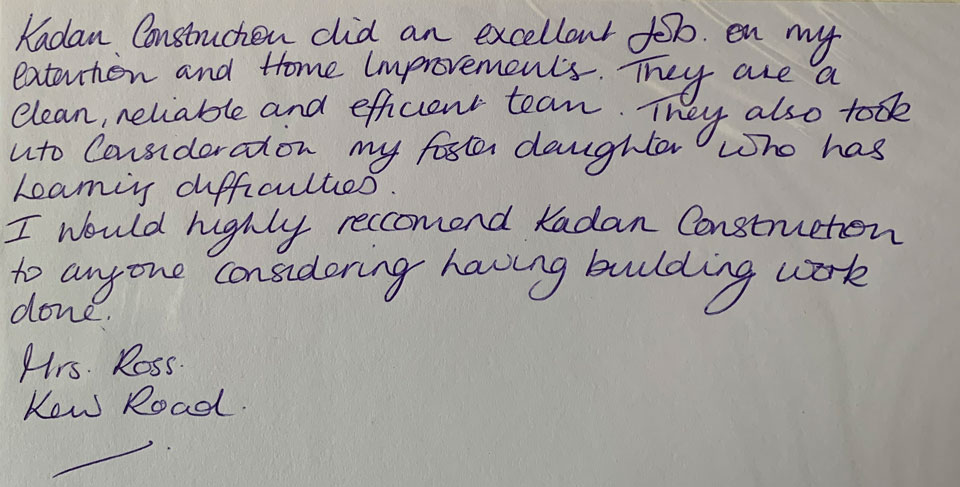 Kadan Construction did an excellent Job. on my
extention and Home Improvements. They are a
Clean, reliable and efficient team. They also took
into Consideration my foster daughter who has
Learning difficulties.
I would highly reccomend Kadan Construction
to anyone considering having building work
done.
Mrs. Ross.
Kew Road.